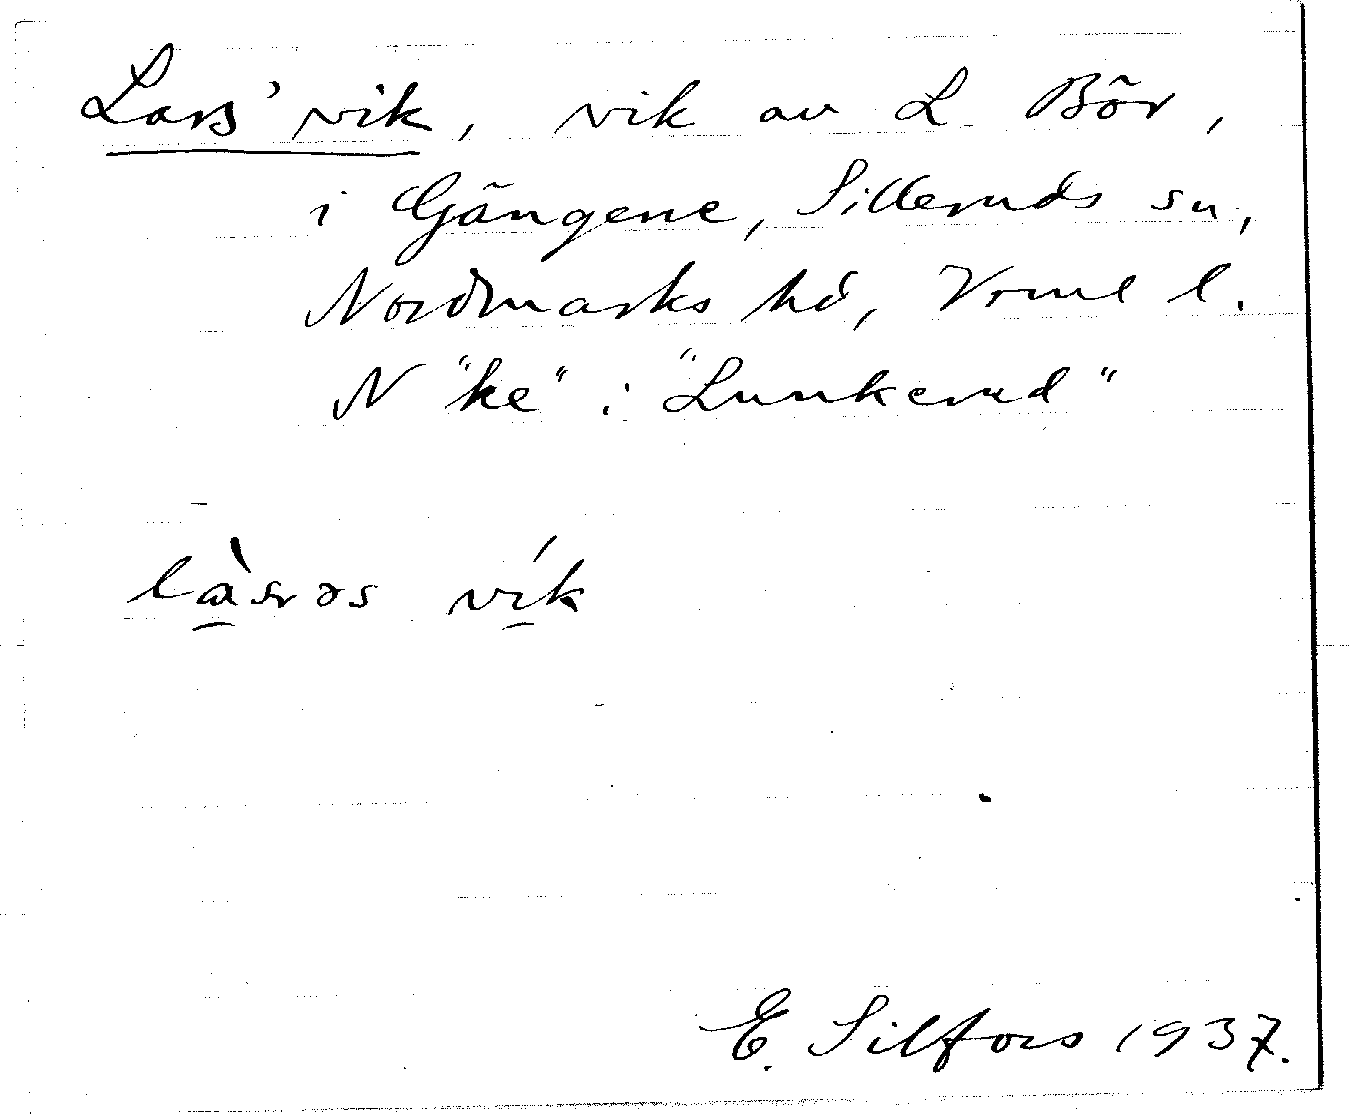 Lars' vik, vik av L Bör,
i Gängene, Silleruds sn,
Nordmarks hd, Vrml l.
N "ke" i "Lunkerud"
vík
E. Silfors 1937.